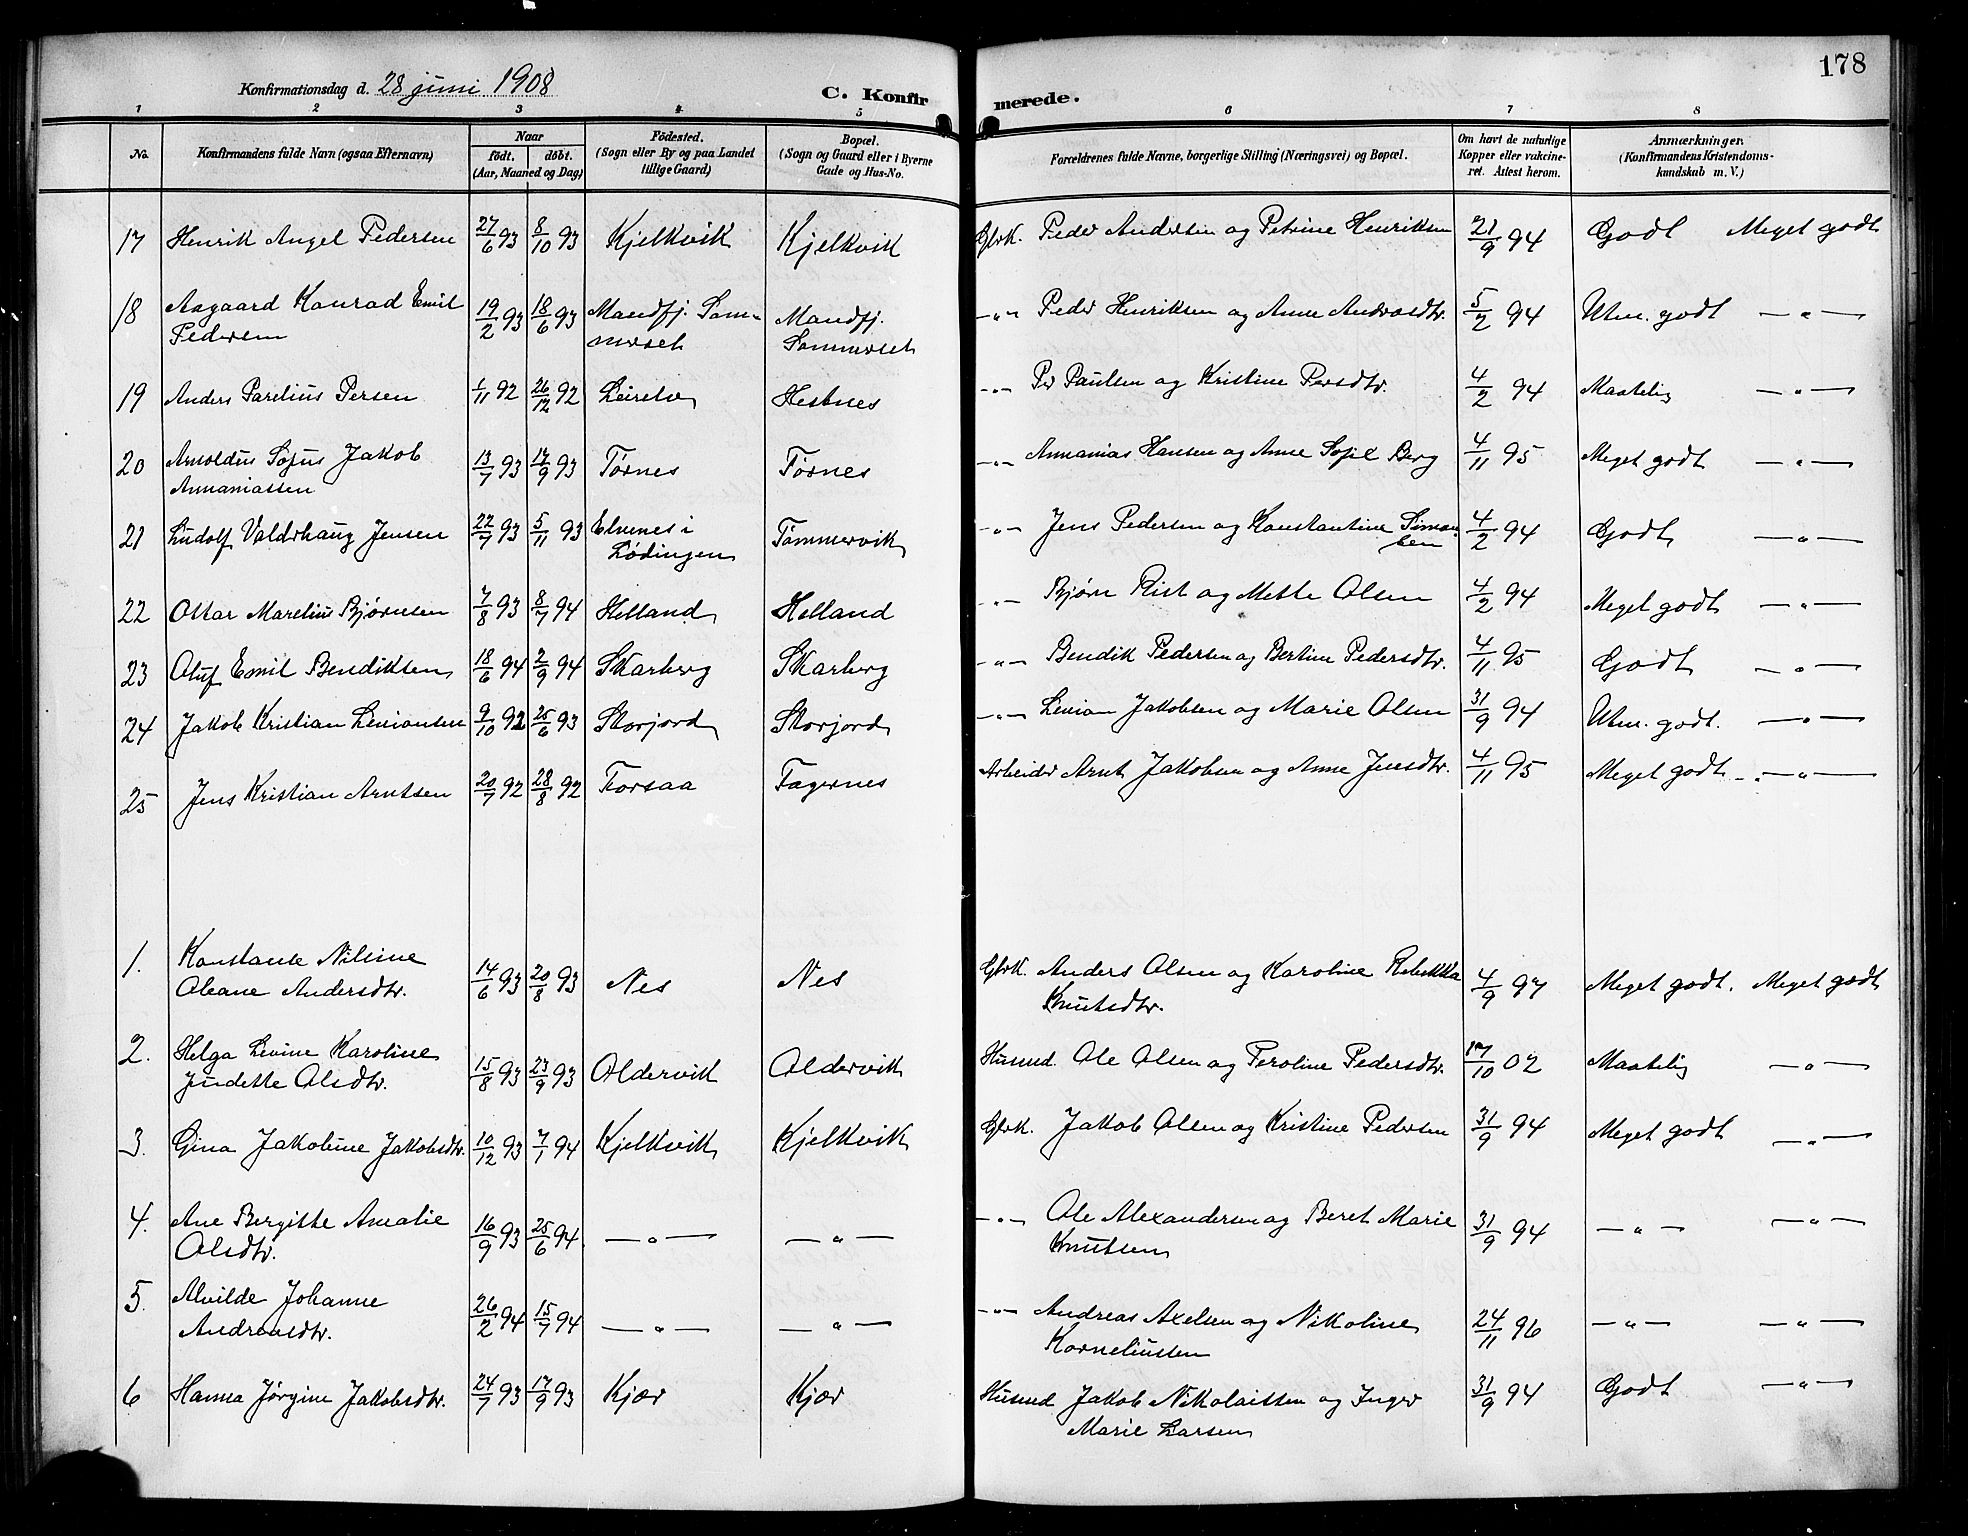 178
Konfirmationsdag d. 28 juni 1908
C. Konfirmerede.
1 2 3 4 5 6 7 8
No. Konfirmandens fulde Navn (ogsaa Efternavn) Naar født. døbt. (Aar, Maaned og Dag) Fødested. (Sogn eller By og paa Landet tillige Gaard) Bopæl. (Sogn og Gaard eller i Byerne Gade og Hus-No. Forældrenes fulde Navne, borgerlige Stilling (Næringsvei) og Bopæl. Om havt de naturlige Kopper eller vakcineret. Attest herom. Anmærkninger. (Konfirmandens Kristendomskundskab m. V.)
17 Henrik Angel Pedersen 27/6 93 8/10 93 Kjelkvik Kjelkvik Gbrk. Peder Andersen og Petrine Henriksen 21/9 94 Godt Meget godt
18 Asgaard Konrad Emil 19/2 93 18/6 93 Mandfj. Som- Mandfj. -"- Peder Henriksen og Anne Andrasdtr. 5/2 94 Utm. godt -"-
Pedersen merset Sommerset
19 Anders Parelius Persen 1/11 92 26/12 92 Leirelv Hestnes -"- Per Paulsen og Kristine Persdtr. 4/2 94 Maatelig -"-
20 Arnoldus Sofus Jakob 13/7 93 17/9 93 Tørnes Tørnes -"- Annanias Hansen og Anne Sofie Berg 4/11 95 Meget godt -"-
Annaniassen
21 Ludolf Valdrhaug Jensen 22/7 93 5/11 93 Elvenes i Tømmervik -"- Jens Pedersen og Konstantine Simon- 4/2 94 Godt -"-
Lødingen sen
22 Ottar Marelius Bjørnsen 7/8 93 8/7 94 Helland Helland -"- Bjørn Rist og Mette Olsen 4/2 94 Meget godt -"-
23 Oluf Emil Bendiktsen 18/6 94 2/9 94 Skarberg Skarberg -"- Bendik Pedersen og Bertine Pedersdtr. 4/11 95 Godt -"-
24 Jakob Kristian Leviansen 9/10 92 25/6 93 Storjord Storjord -"- Levian Jakobsen og Marie Olsen 31/9 94 Utm. godt. -"-
25 Jens Kristian Arntsen 20/7 92 28/8 92 Forsaa Fagernes Arbeider Arnt Jakobsen og Anne Jensdtr. 4/11 95 Meget godt -"-
1. Konstanse Nilsine 14/6 93 20/8 93 Nes Nes Gbrk. Anders Olsen og Karoline Rebekka 4/9 97 Meget godt. Meget godt
Oleane Andersdtr. Knutsdtr.
2. Helga Levine Karoline 15/8 93 23/9 93 Oldervik Oldervik Husmd. Ole Olsen og Peroline Pedersdtr. 17/10 02 Maatelig -"-
Judette Olsdtr.
3. Gina Jakobine Jakobsdtr. 10/12 93 7/1 94 Kjelkvik Kjelkvik Gbrk. Jakob Olsen og Kristine Pedersen 31/9 94 Meget godt -"-
4. Ane Bergitte Amalie 16/9 93 25/6 94 -"- -"- -"- Ole Alexandersen og Beret Marie 31/9 94 -"- -"-
Olsdtr. Knutsen
5. Alvilde Johanne 26/2 94 15/7 94 -"- -"- -"- Andreas Axelsen og Nikoline 24/11 96 -"- -"-
Andreasdtr. Korneliussen
6 Hanna Jørgine Jakobsdtr. 24/7 93 17/9 93 Kjær Kjær Husmd Jakob Nikolaissen og Inger 31/9 94 Godt -"-
Marie Larsen